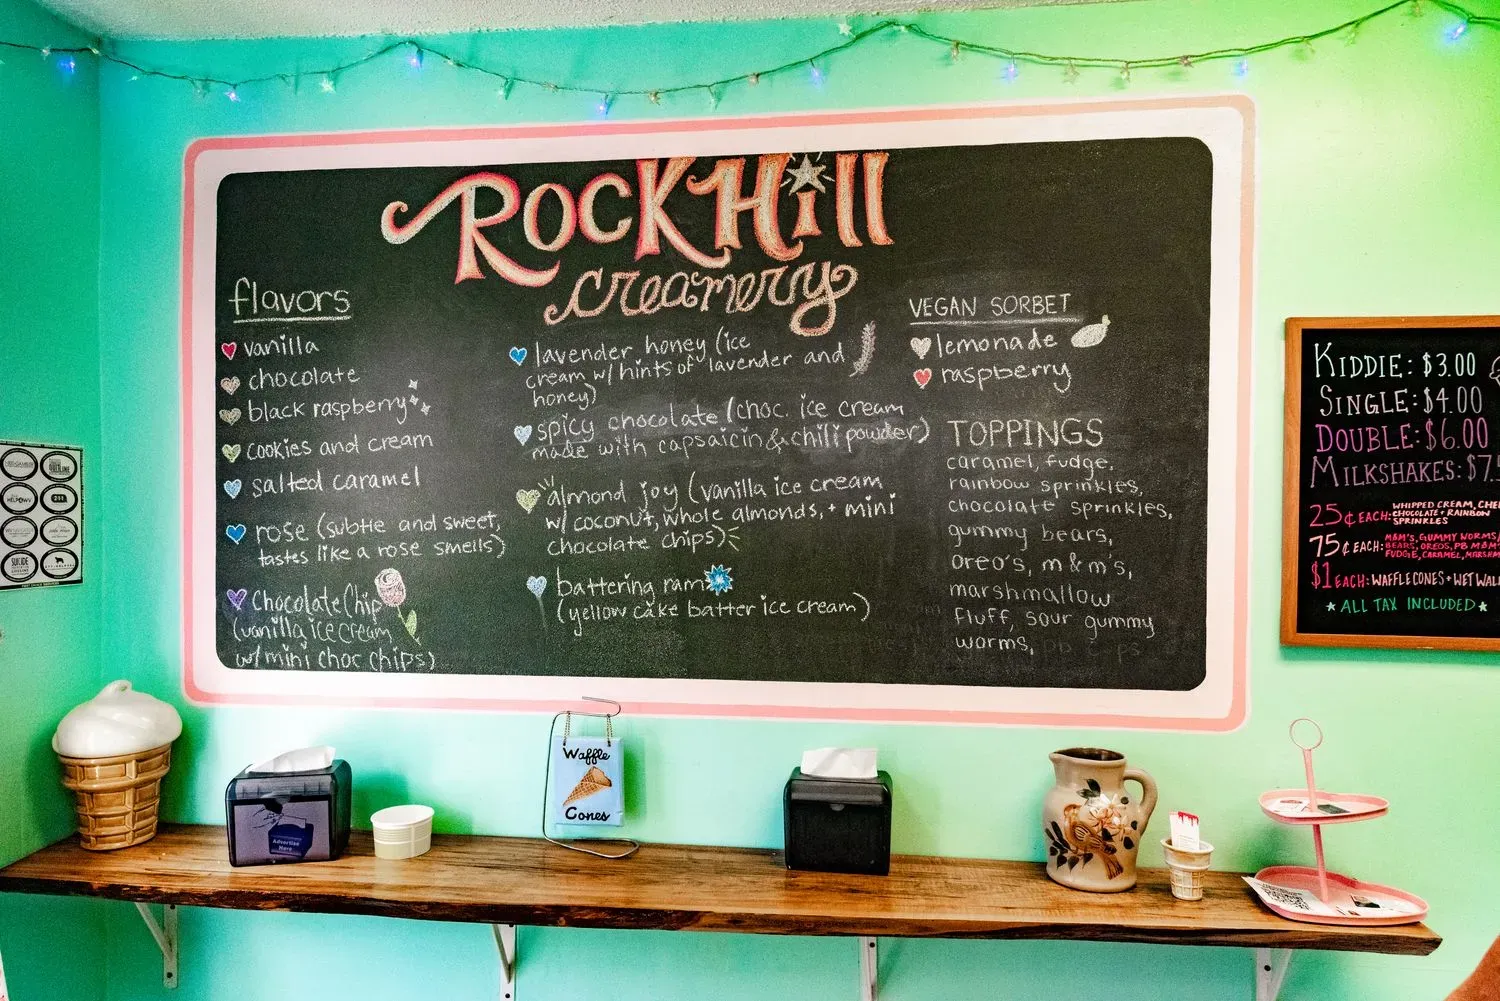 RockHill
creamery
flavors
vanilla
chocolate
black raspberry
cookies and cream
salted caramel
rose (subtle and sweet,
tastes like a rose smells)
Chocolate Chip
(vanilla ice cream
w/ mini choc chips)
lavender honey (ice
cream w/ hints of lavender and
honey)
spicy chocolate (choc. ice cream
made with capsaicin & chili powder)
almond joy (vanilla ice cream
w/ coconut, whole almonds, + mini
chocolate chips)
battering ram
(yellow cake batter ice cream)
VEGAN SORBET
lemonade
raspberry
TOPPINGS
caramel, fudge,
rainbow sprinkles,
chocolate sprinkles,
gummy bears,
oreo's, m&m's,
marshmallow
fluff, sour gummy
worms,
KIDDIE: $3.00
SINGLE: $4.00
DOUBLE: $6.00
MILKSHAKES: $7.5
25¢ EACH: WHIPPED CREAM,
CHOCOLATE + RAINBOW
SPRINKLES
75¢ EACH: M&M'S, GUMMY WORMS/
BEARS, OREOS, PB M&M'S
FUDGE, CARAMEL,
$1 EACH: WAFFLE CONES + WET
ALL TAX INCLUDED
Waffle
Cones
Advertise
Here